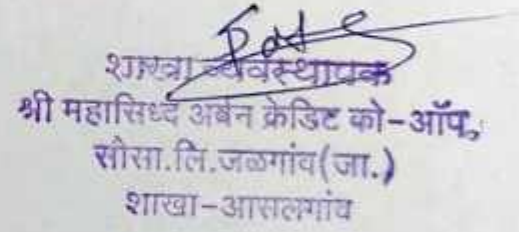 शाखा व्यवस्थापक
श्री महासिध्द अर्बन क्रेडिट को-ऑप.
सोसा.लि.जळगांव(जा.)
शाखा-आसलगांव